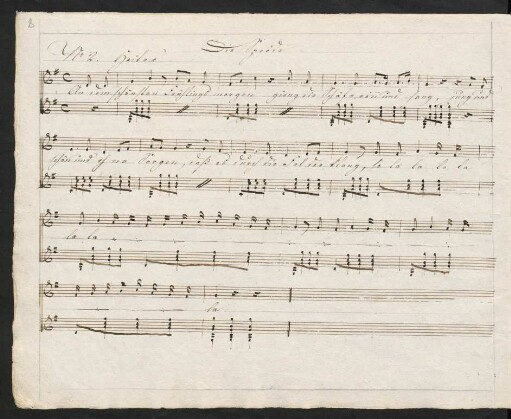 8.
Die Spröde
No 2. Heiter
An dem schönsten Frühlings morgen gieng die Schäferin und sang, jung und
schön und ohne Sorgen, daß es durch die Felder klang, la la la la la
la la
la